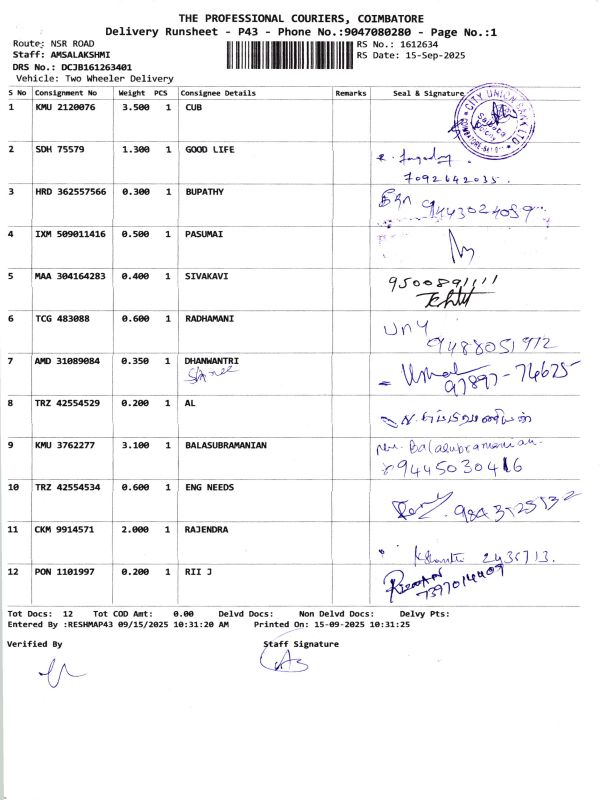 THE PROFESSIONAL COURIERS, COIMBATORE
Delivery Runsheet - P43 - Phone No.:9047080280 - Page No.:1
Route: NSR ROAD RS No.: 1612634
Staff: AMSALAKSHMI RS Date: 15-Sep-2025
DRS No.: DCJB161263401
Vehicle: Two Wheeler Delivery
S No Consignment No Weight PCS Consignee Details Remarks Seal & Signature
CITY UNION BANK LTD
1 KMU 2120076 3.500 1 CUB
2 SDH 75579 1.300 1 GOOD LIFE
7092642035.
3 HRD 362557566 0.300 1 BUPATHY
9443024059
4 IXM 509011416 0.500 1 PASUMAI
5 MAA 304164283 0.400 1 SIVAKAVI
9500891111
6 TCG 483088 0.600 1 RADHAMANI
9488051972
7 AMD 31089084 0.350 1 DHANWANTRI
97897-74675
8 TRZ 42554529 0.200 1 AL
9 KMU 3762277 3.100 1 BALASUBRAMANIAN
Balasubramanian
9445030416
10 TRZ 42554534 0.600 1 ENG NEEDS
11 CKM 9914571 2.000 1 RAJENDRA
2435713.
12 PON 1101997 0.200 1 RII J
7397014409
Tot Docs: 12 Tot COD Amt: 0.00 Delvd Docs: Non Delvd Docs: Delvy Pts:
Entered By :RESHMAP43 09/15/2025 10:31:20 AM Printed On: 15-09-2025 10:31:25
Verified By Staff Signature